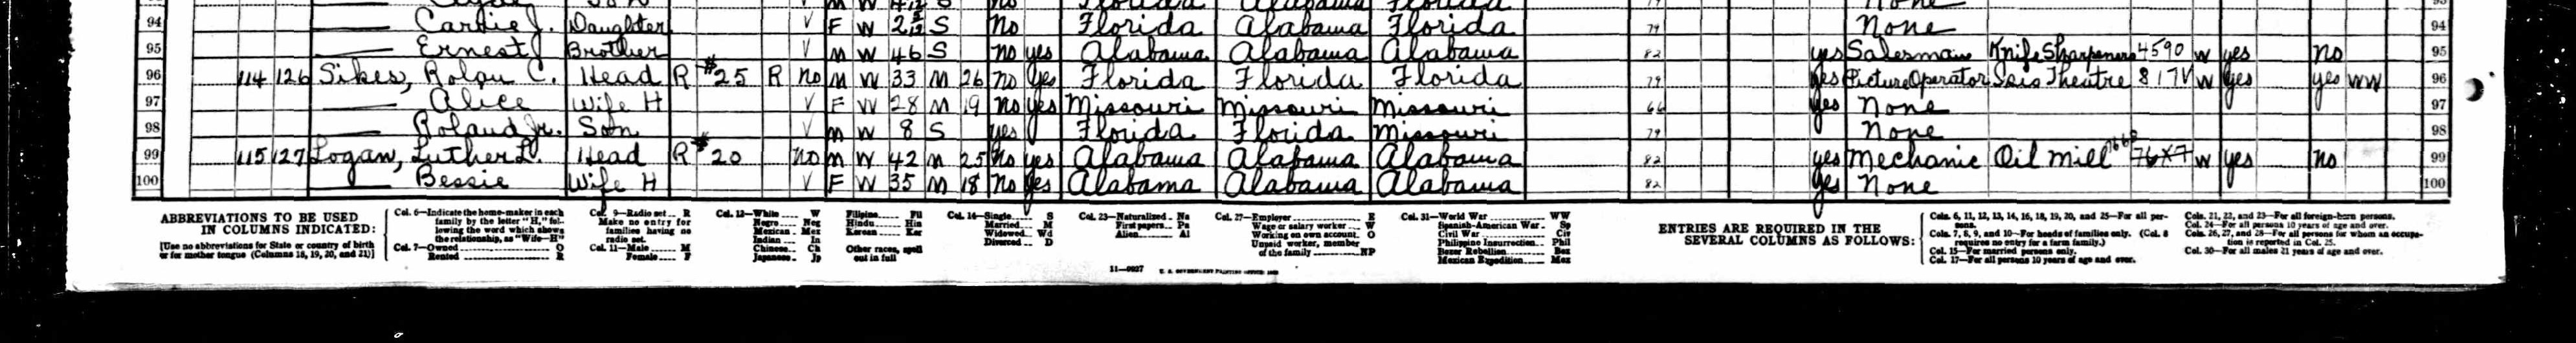 94 Carrie J. Daughter V F W 2 2/12 S No Florida Alabama Florida 79 None 94
95 Ernest J Brother V M W 46 S no yes Alabama Alabama Alabama 82 yes Salesman Knife Sharpeners 4590 W yes no 95
96 114 126 Sikes, Rolan C. Head R #25 R No M W 33 M 26 no yes Florida Florida Florida 79 yes Picture Operator Isis Theatre 817V W yes yes WW 96
97 Alice Wife H V F W 28 M 19 no yes Missouri Missouri Missouri 66 yes None 97
98 Roland Jr. Son V M W 8 S yes Florida Florida Missouri 79 None 98
99 115 127 Logan, Luther L. Head R #20 No M W 42 M 25 No yes Alabama Alabama Alabama 82 yes Mechanic Oil Mill 76X7 W yes no 99
100 Bessie Wife H V F W 35 M 18 No yes Alabama Alabama Alabama 82 yes None 100
ABBREVIATIONS TO BE USED
IN COLUMNS INDICATED:
[Use no abbreviations for State or country of birth
or for mother tongue (Columns 18, 19, 20, and 21)]
Col. 6—Indicate the home-maker in each
family by the letter "H," fol-
lowing the word which shows
the relationship, as "Wife—H"
Col. 7—Owned O
Rented R
Col. 9—Radio set R
Make no entry for
families having no
radio set.
Col. 11—Male M
Female F
Col. 12—White W
Negro Neg
Mexican Mex
Indian In
Chinese Ch
Japanese Jp
Filipino Fil
Hindu Hin
Korean Kor
Other races, spell
out in full
Col. 14—Single S
Married M
Widowed Wd
Divorced D
Col. 23—Naturalized Na
First papers Pa
Alien Al
Col. 27—Employer E
Wage or salary worker W
Working on own account O
Unpaid worker, member
of the family NP
Col. 31—World War WW
Spanish-American War Sp
Civil War Civ
Philippine Insurrection Phil
Boxer Rebellion Box
Mexican Expedition Mex
ENTRIES ARE REQUIRED IN THE
SEVERAL COLUMNS AS FOLLOWS:
Cols. 6, 11, 12, 13, 14, 16, 18, 19, 20, and 25—For all per-
sons.
Cols. 7, 8, 9, and 10—For heads of families only. (Col. 8
requires no entry for a farm family.)
Col. 15—For married persons only.
Col. 17—For all persons 10 years of age and over.
Cols. 21, 22, and 23—For all foreign-born persons.
Col. 24—For all persons 10 years of age and over.
Cols. 26, 27, and 28—For all persons for whom an occupa-
tion is reported in Col. 25.
Col. 30—For all males 21 years of age and over.
11—9937 U. S. GOVERNMENT PRINTING OFFICE